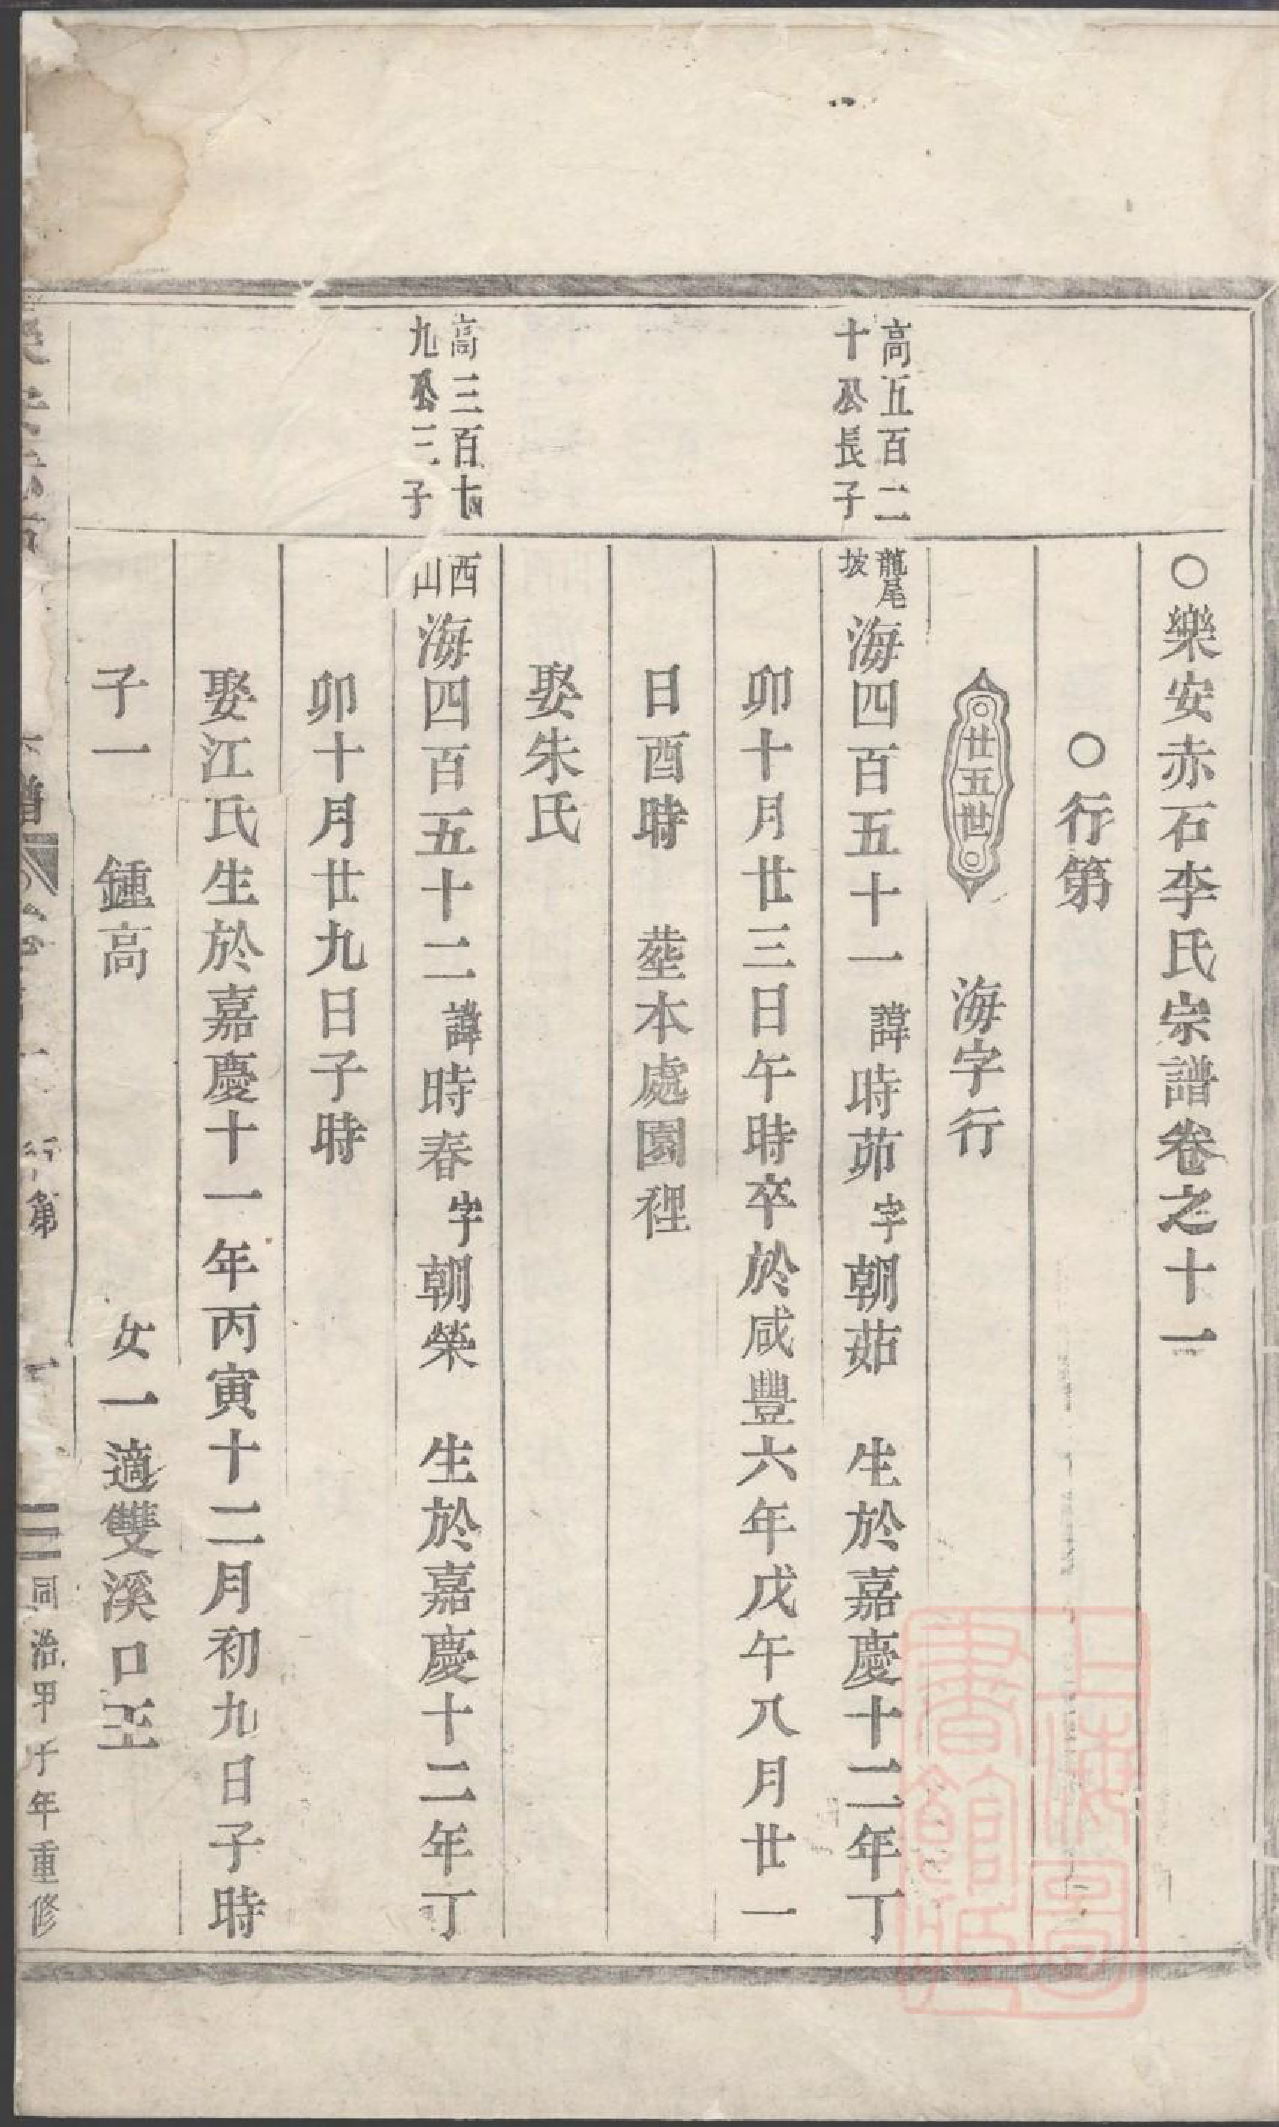 ○樂安赤石李氏宗譜卷之十一
○行第
世五世
海字行
高五百二
十公長子
龍尾
坡
海四百五十一 諱時茆字朝茹 生於嘉慶十二年丁
卯十月廿三日午時卒於咸豐六年戊午八月廿一
日酉時 塟本處園裡
娶朱氏
高三百十
九公三子
西
山
海四百五十二 諱時春字朝榮 生於嘉慶十二年丁
卯十月廿九日子時
娶江氏生於嘉慶十一年丙寅十二月初九日子時
子一 鍾高 女一適雙溪口王
行第
一
同治甲子年重修
上海圖
書館藏